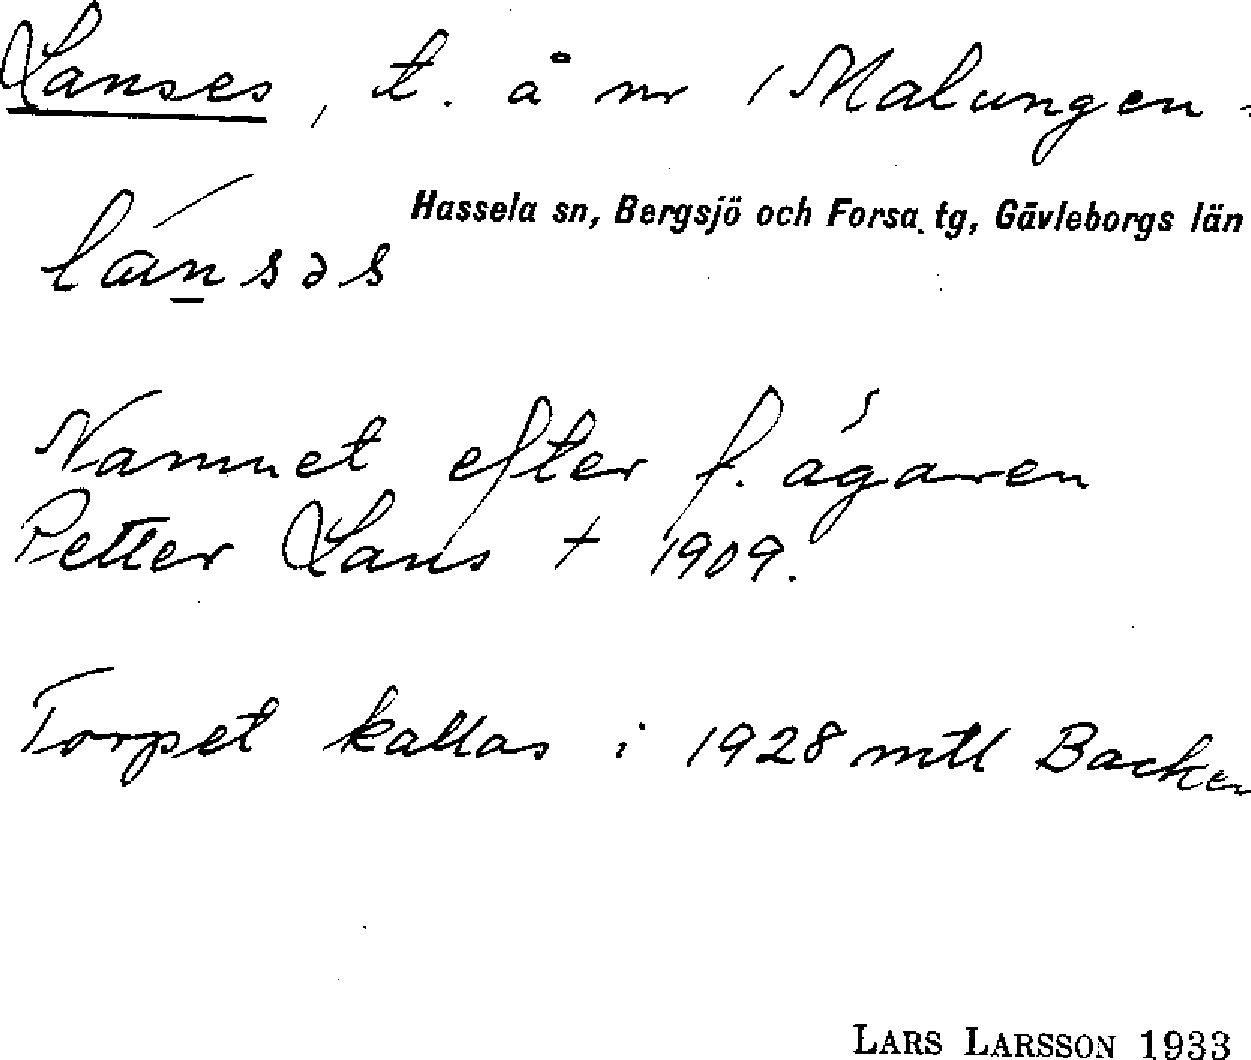 Lanses, t. å nr 1 Malungen.
Hassela sn, Bergsjö och Forsa tg, Gävleborgs län
lánsəs
Namnet efter f. ägaren
Petter Lans † 1909.
Torpet kallas i 1928 mtl Backen
LARS LARSSON 1933